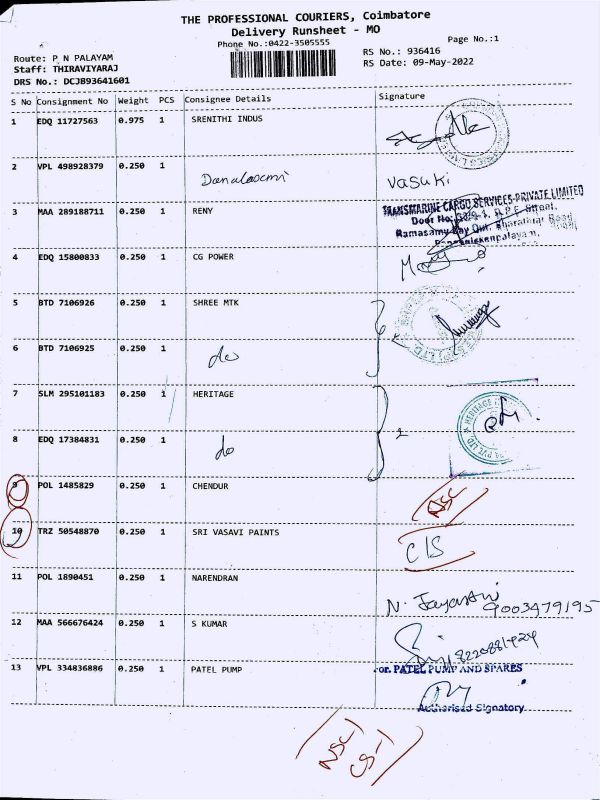 THE PROFESSIONAL COURIERS, Coimbatore
Delivery Runsheet - MO
Phone No.:0422-3505555
Page No.:1
Route: P N PALAYAM
RS No.: 936416
Staff: THIRAVIYARAJ
RS Date: 09-May-2022
DRS No.: DCJB93641601
S No Consignment No Weight PCS Consignee Details Signature
1 EDQ 11727563 0.975 1 SRENITHI INDUS
2 VPL 498928379 0.250 1 Danalaxmi Vasuki
3 MAA 289188711 0.250 1 RENY
TRANSMARINE CARGO SERVICES PRIVATE LIMITED
Door No:
Ramasamy Lay Out, Bharathiar Road
4 EDQ 15800833 0.250 1 CG POWER
5 BTD 7106926 0.250 1 SHREE MTK
6 BTD 7106925 0.250 1 do
7 SLM 295101183 0.250 1 HERITAGE
8 EDQ 17384831 0.250 1 do 2
HERITAGE
9 POL 1485829 0.250 1 CHENDUR
10 TRZ 50548870 0.250 1 SRI VASAVI PAINTS C/S
11 POL 1890451 0.250 1 NARENDRAN N. Jayanthi 9003479195
12 MAA 566676424 0.250 1 S KUMAR
13 VPL 334836886 0.250 1 PATEL PUMP
For. PATEL PUMP AND SPARES
Authorised Signatory